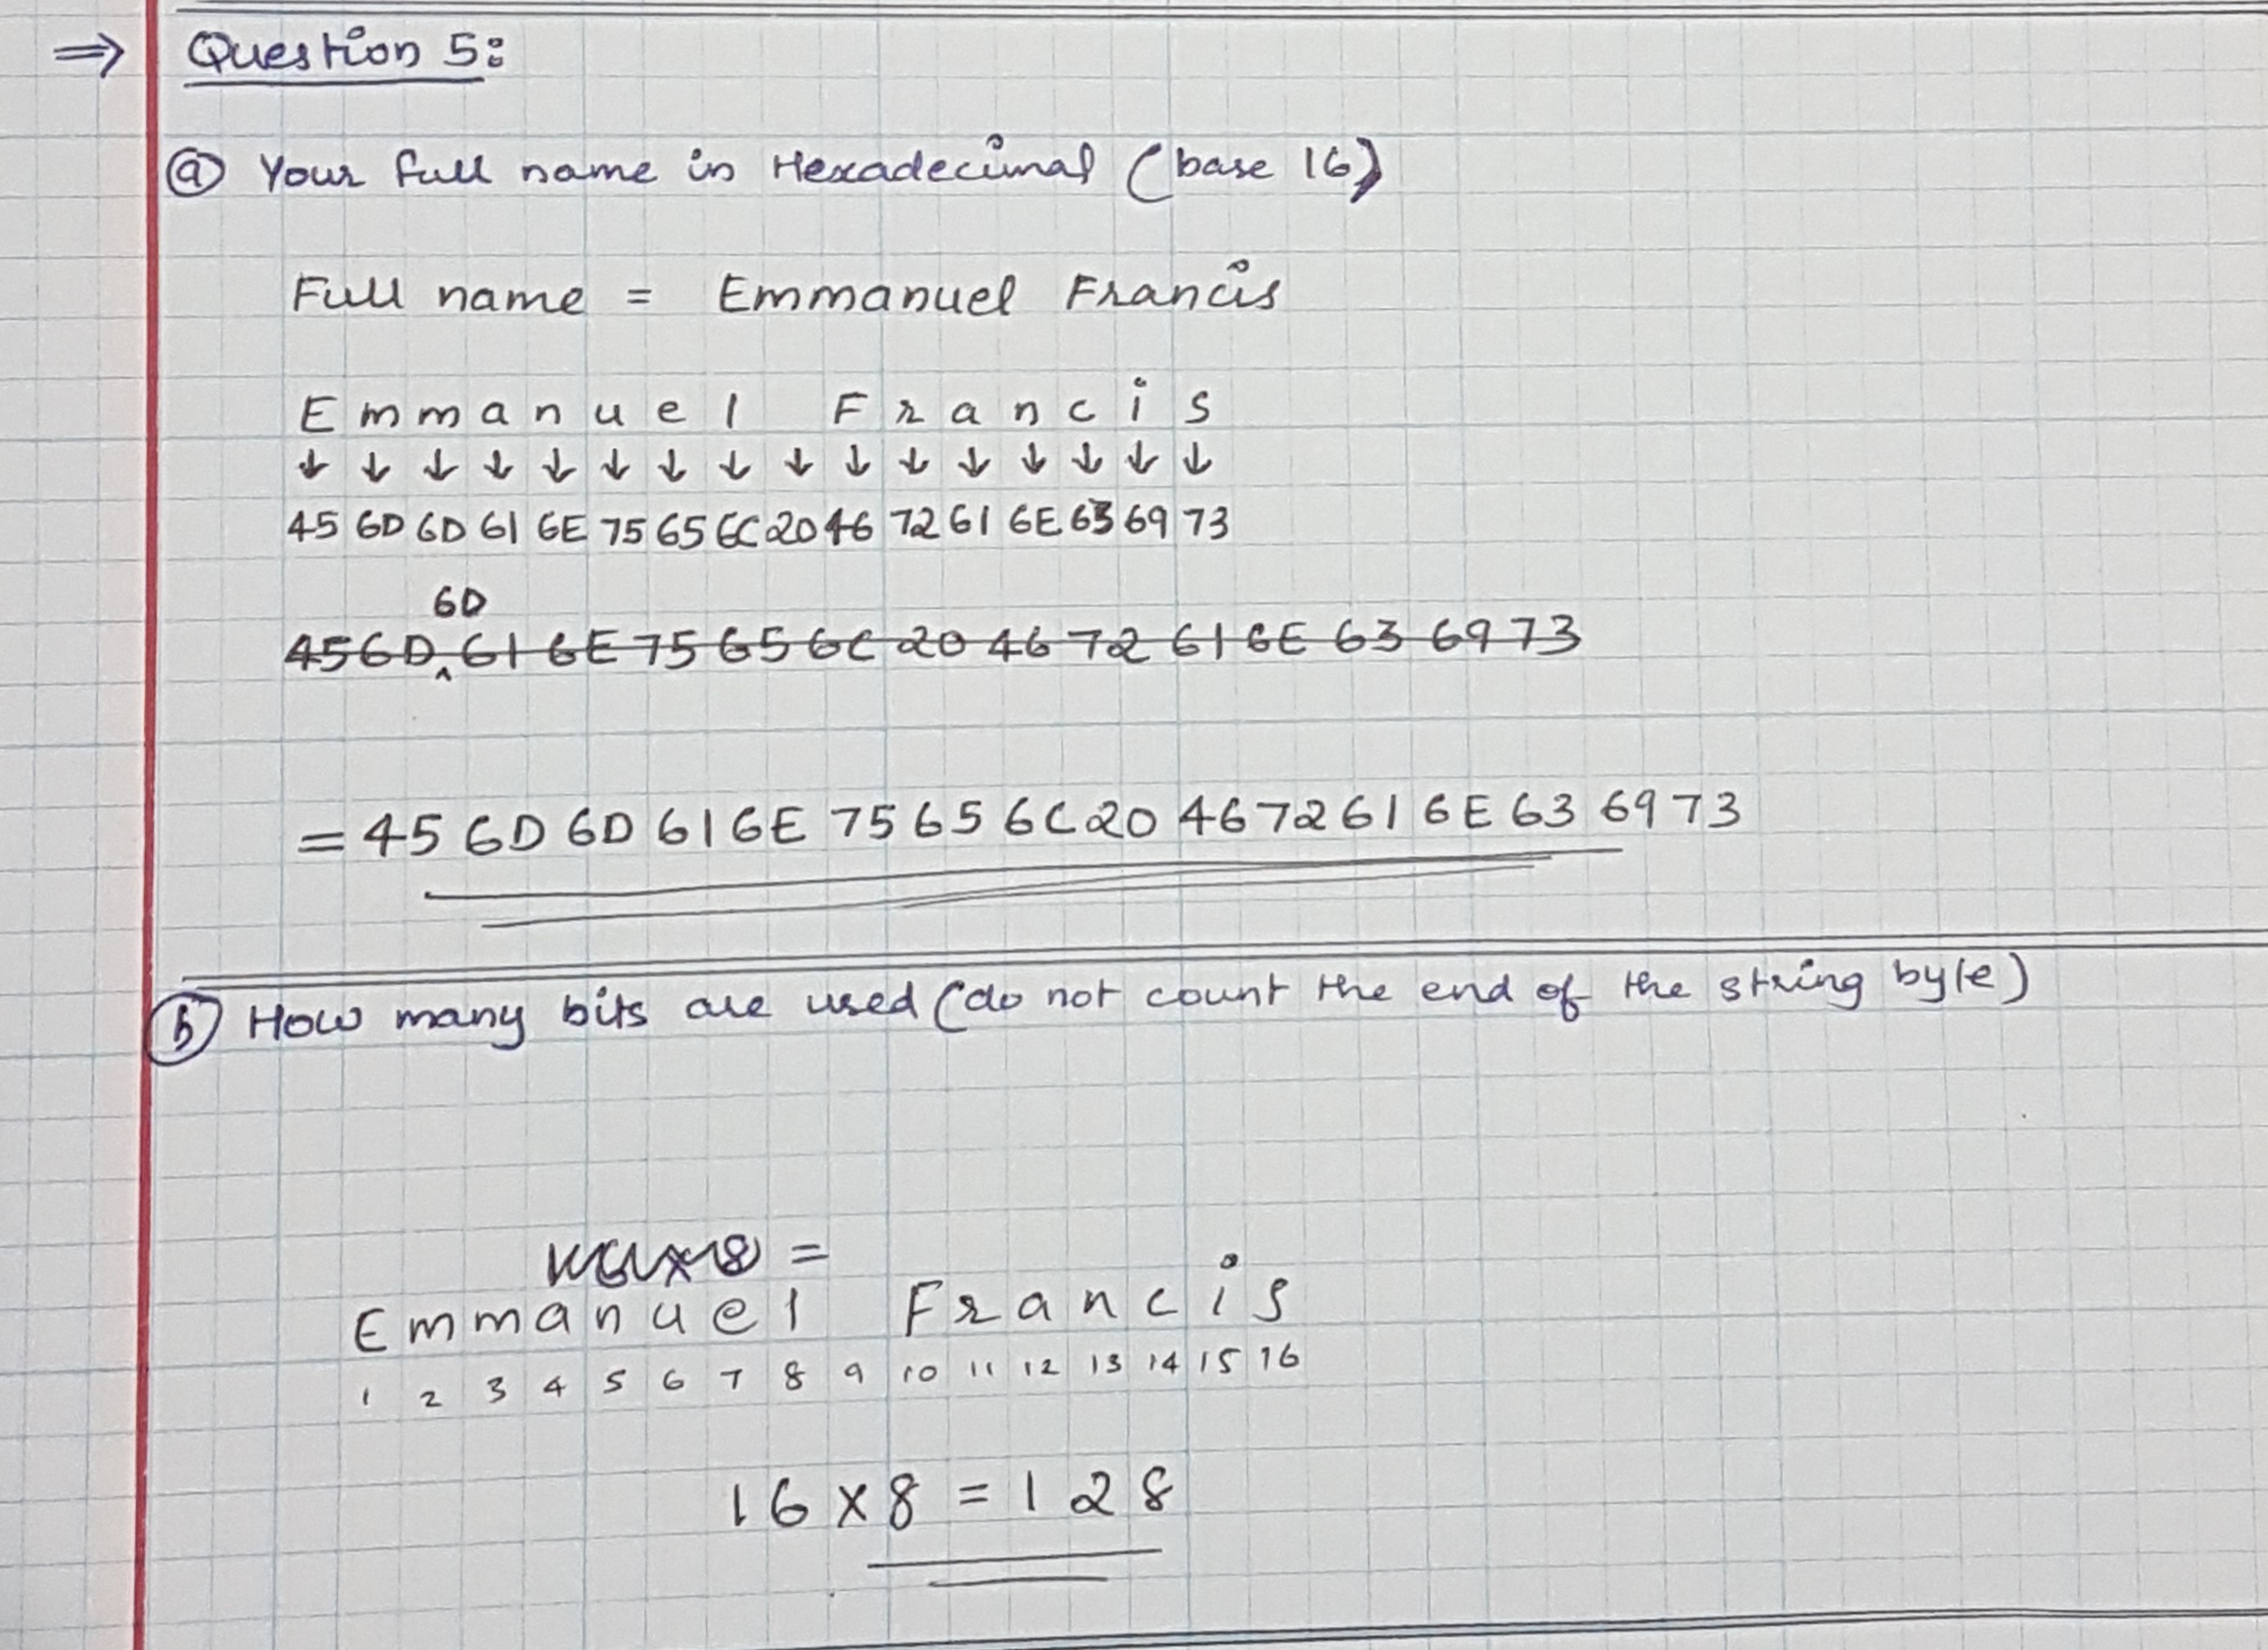 ⇒ Question 5:
ⓐ Your full name in Hexadecimal (base 16)
Full name = Emmanuel Francis
E m m a n u e l F r a n c i s
↓ ↓ ↓ ↓ ↓ ↓ ↓ ↓ ↓ ↓ ↓ ↓ ↓ ↓ ↓ ↓
45 6D 6D 61 6E 75 65 6C 20 46 72 61 6E 63 69 73
6D
456D ^ 61 6E 75 65 6C 20 46 72 61 6E 63 69 73
= 45 6D 6D 61 6E 75 65 6C 20 46 72 61 6E 63 69 73
ⓑ How many bits are used (do not count the end of the string byte)
16 x 8 =
E m m a n u e l F r a n c i s
1 2 3 4 5 6 7 8 9 10 11 12 13 14 15 16
16 x 8 = 128